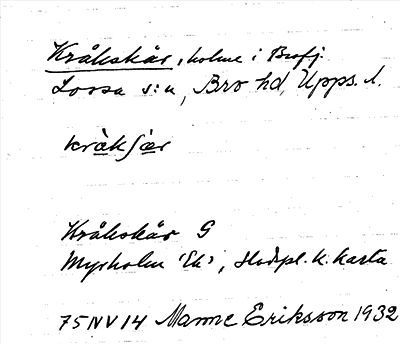 Kråkskär, holme i Brofj.
Lossa s:n, Bro hd, Upps. l.
kràkʃæ̀r
Kråkskär G
Myrholm 'Ek',  k. karta
75NV14 Manne Eriksson 1932